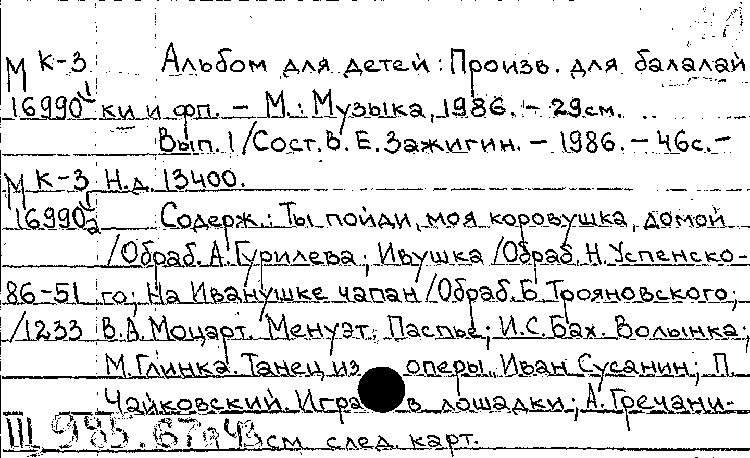 М К-3 Альбом для детей: Произв. для балалай
16990 ки и фп. - М.: Музыка, 1986. - 29см.
Вып. 1 / Сост. В. Е. Зажигин. - 1986. - 46с. -
М К-3 Н.д. 13400.
16990 Содерж.: Ты пойди, моя коровушка, домой
/Обраб. А. Гурилева; Ивушка /Обраб. Н. Успенско-
86-51 го; На Иванушке чапан /Обраб. Б. Трояновского;
/1233 В.А. Моцарт. Менуэт; Паспье; И.С. Бах. Волынка;
М. Глинка. Танец из оперы „Иван Сусанин; П.
Чайковский. Игра в лошадки; А. Гречани-
см. след. карт.